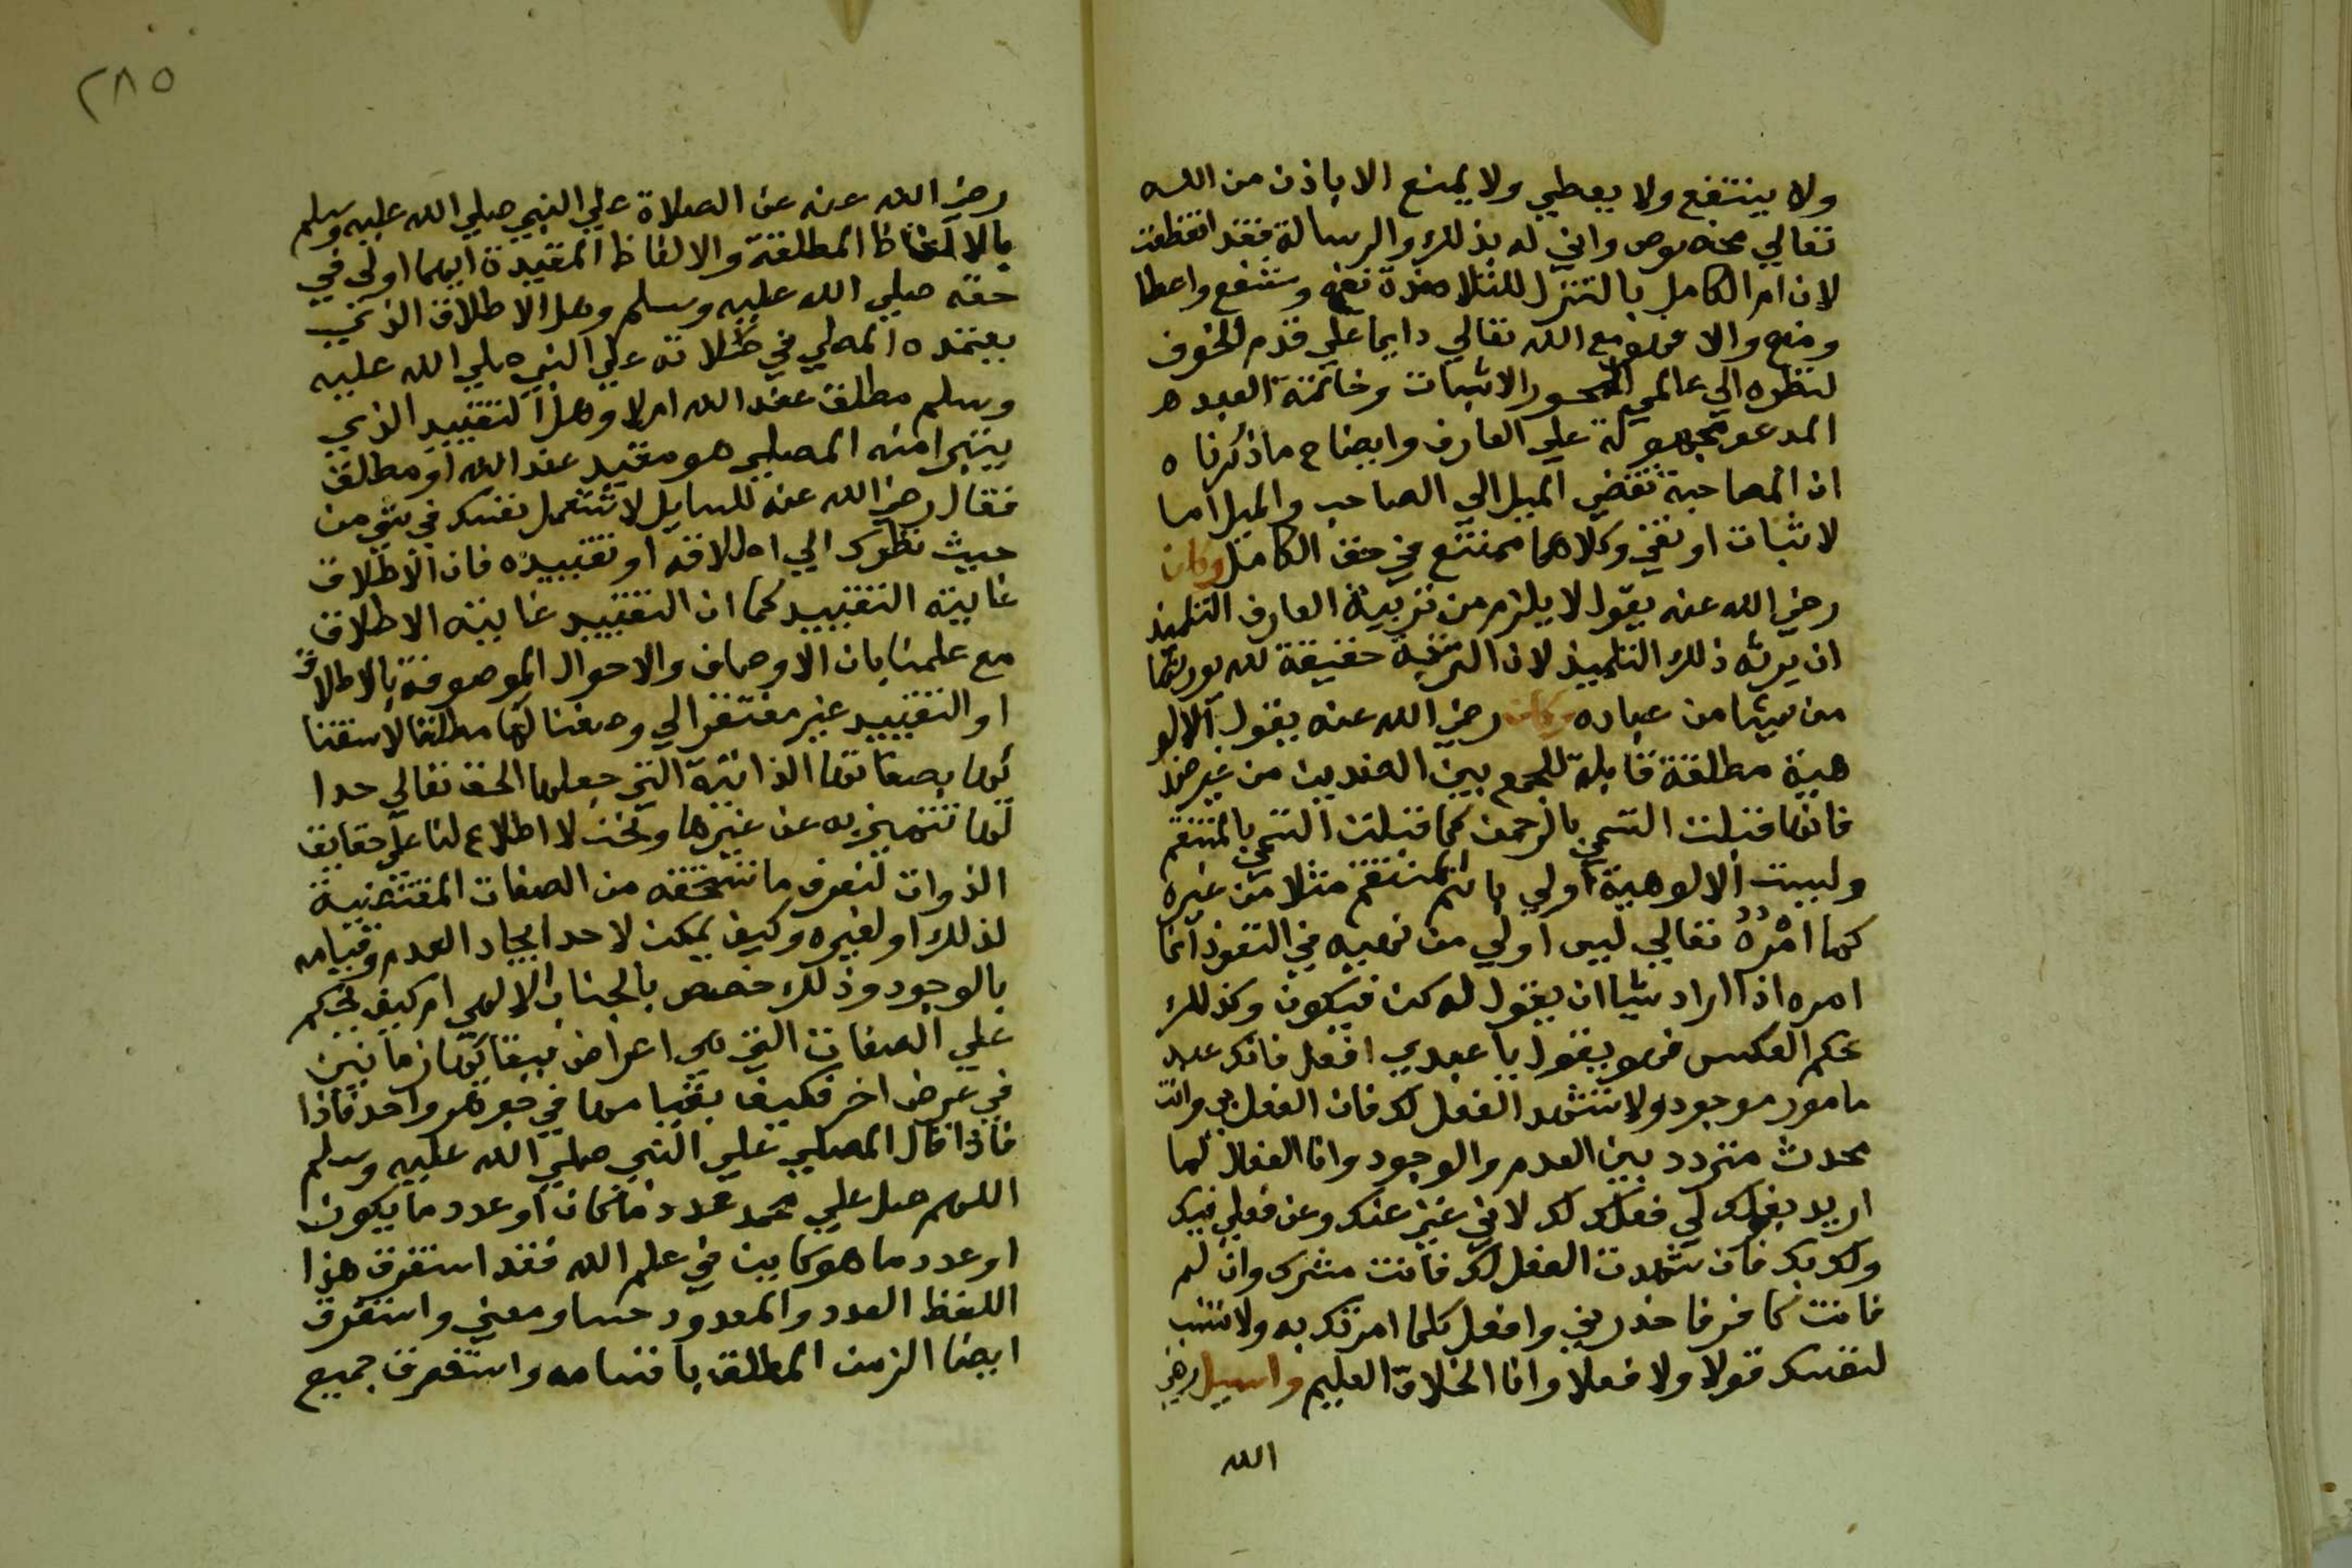 ولا ينتفع ولا يعطي ولا يمنع الا باذن من الله
تعالي مخصوص واني له بذلك والرسالة فقد انقطعت
لان امر الكامل بالتنزل للتلامذة نفع وشفع واعطا
ومنع والا فهو مع الله تعالي دايما علي قدم الخوف
لنظره الي عالمي المحو والاثبات وخاتمة العبد
المدعو مجهولة علي العارف وايضاح ما ذكرناه
ان المصاحبة تقتضي الميل الي الصاحب والميل اما
لاثبات او نفي وكلاهما ممتنع في حق الكامل وكان
رضي الله عنه يقول لا يلزم من تربية العارف التلميذ
ان يرثه ذلك التلميذ لان التربية حقيقة لله يورثها
من يشا من عباده وكان رضي الله عنه يقول الالو
هية مطلقة قابلة للجمع بين الضدين من غير ضد
فانها قبلت التسمي بالرحمن كما قبلت التسمي بالمنتقم
وليست الالوهية اولي باسم المنتقم مثلا من غيره
كما امره تعالي ليس اولي من نهيه في النفوذ انما
امره اذا اراد شيا ان يقول له كن فيكون وكذلك
حكم العكس فهو يقول يا عبدي افعل فانك عبد
مامور موجود ولا تشهد الفعل لك فان الفعل لي وانت
محدث متردد بين العدم والوجود وانا الفعال لما
اريد بفعلك لي فعلك لك لاني غني عنك وعن فعلي فيك
ولك بك فان شهدت الفعل لك فانت مشرك وان لم
فانت كافر فاحذرني وافعل كلما امرتك به ولا تنسب
لنفسك قولا ولا فعلا وانا الخلاق العليم وسيل رضي
الله
٢٨٥
رضي الله عنه عن الصلاة علي النبي صلي الله عليه وسلم
بالالفاظ المطلقة والالفاظ المقيدة ايهما اولي في
حقه صلي الله عليه وسلم وهل الاطلاق الذي
يعتمده المصلي في صلاته علي النبي صلي الله عليه
وسلم مطلق عند الله ام لا وهل التقييد الذي
يتبرا منه المصلي هو مقيد عند الله او مطلق
فقال رضي الله عنه للسايل لا تستعمل نفسك في شي من
حيث نظرك الي اطلاقه او تقييده فان الاطلاق
غايته التقييد كما ان التقييد غايته الاطلاق
مع علمنا بان الاوصاف والاحوال الموصوفة بالاطلاق
او التقييد غير مفتقر الي وصفنا لها مطلقا لاستغنا
ئها بصفاتها الذاتية التي جعلها الحق تعالي حدا
لها تتميز به عن غيرها ونحن لا اطلاع لنا علي حقايق
الذوات لنعرف ما تستحقه من الصفات المقتضية
لذلك او لغيره وكيف يمكن لاحد ايجاد العدم وقيامه
بالوجود وذلك خصيص بالجناب الالهي ام كيف نحكم
علي الصفات التي هي اعراض ببقائها زمانين
في عرض اخر فكيف بقيامها في جوهر واحد فاذا
فاذا قال المصلي علي النبي صلي الله عليه وسلم
اللهم صل علي محمد عدد ما كان او عدد ما يكون
او عدد ما هو كاين في علم الله فقد استغرق هذا
اللفظ العدد والمعدود حسا ومعني واستغرق
ايضا الزمن المطلق باقسامه واستغرق جميع